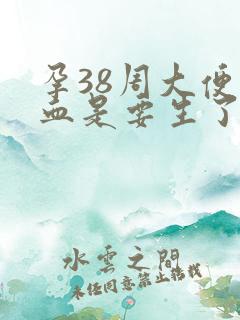 孕38周大便
血是要生了
水云之间
未经同意禁止搬栽